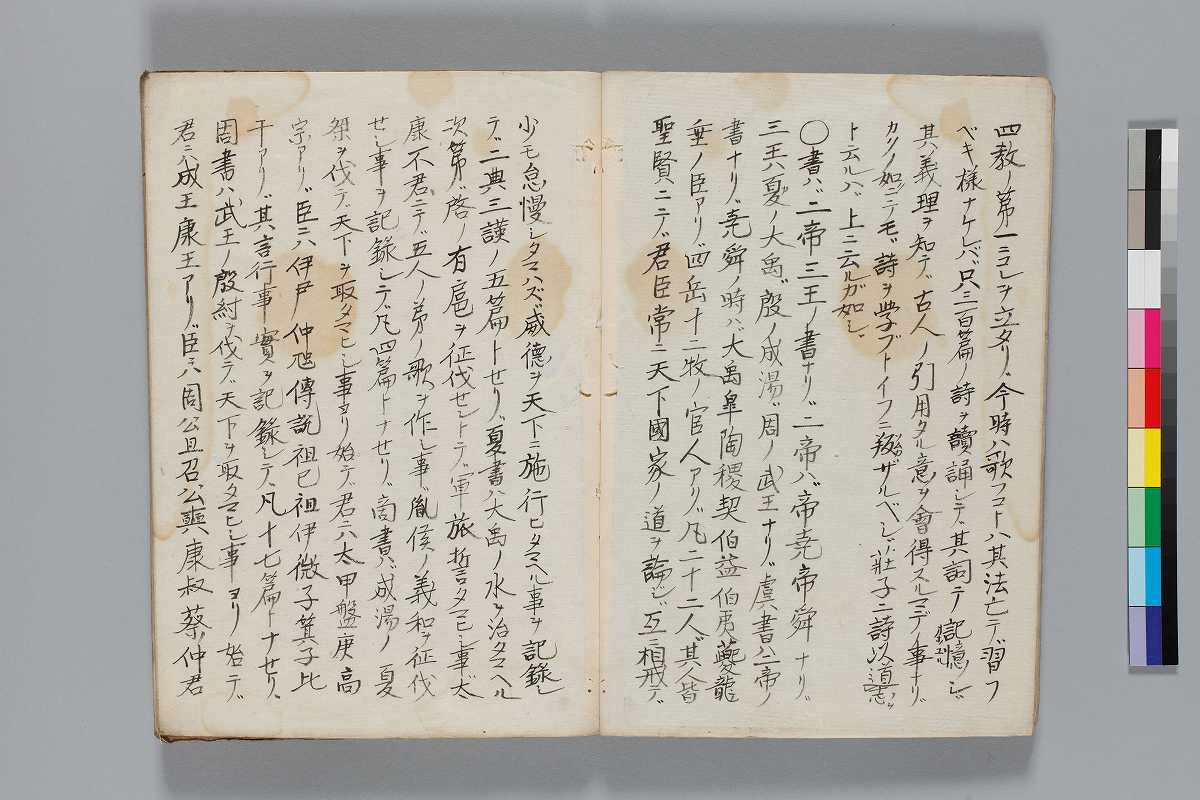 四教ノ第一ニコレヲ立タリ今時ハ歌フコトハ其法亡テ習フ
ベキ様ナケレバ只三百篇ノ詩ヲ讀誦シテ其詞ヲ記憶シ
其義理ヲ知テ古人ノ引用タル意ヲ會得スルマデノ事ナリ
カクノ如ニテモ詩ヲ学ブトイフニ叛ザルベシ荘子ニ詩以道志ヲ
ト云ルハ上ニ云ルガ如シ
〇書ハ二帝三王ノ書ナリ二帝ハ帝堯帝舜ナリ
三王ハ夏ノ大禹殷ノ成湯周ノ武王ナリ虞書ハ二帝ノ
書ナリ堯舜ノ時ハ大禹皐陶稷契伯益伯夷夔龍
垂ノ臣アリ四岳十二牧ノ官人アリ凡二十二人其人皆
聖賢ニテ君臣常ニ天下國家ノ道ヲ論ジ互ニ相戒テ
少モ怠慢シタマハズ威德ヲ天下ニ施行ヒタマヘル事ヲ記録シ
テ二典三謨ノ五篇トセリ夏書ハ大禹ノ水ヲ治タマヘル
次第啓ノ有扈ヲ征伐セントテ軍旅ニ誓タマヒシ事太
康不君ニテ五人ノ弟ノ歌ヲ作シ事胤侯ノ義和ヲ征伐
セシ事ヲ記録シテ凡四篇トナセリ商書ハ成湯ノ夏
桀ヲ伐テ天下ヲ取タマヒシ事ヨリ始テ君ニハ太甲盤庚高
宗アリ臣ニハ伊尹仲虺傳説祖已祖伊微子箕子比
干アリ其言行事實ヲ記錄シテ凡十七篇トナセリ
周書ハ武王ノ殷紂ヲ伐テ天下ヲ取タマヒシ事ヨリ始テ
君ニハ成王康王アリ臣ニハ周公旦召公奭康叔蔡仲君